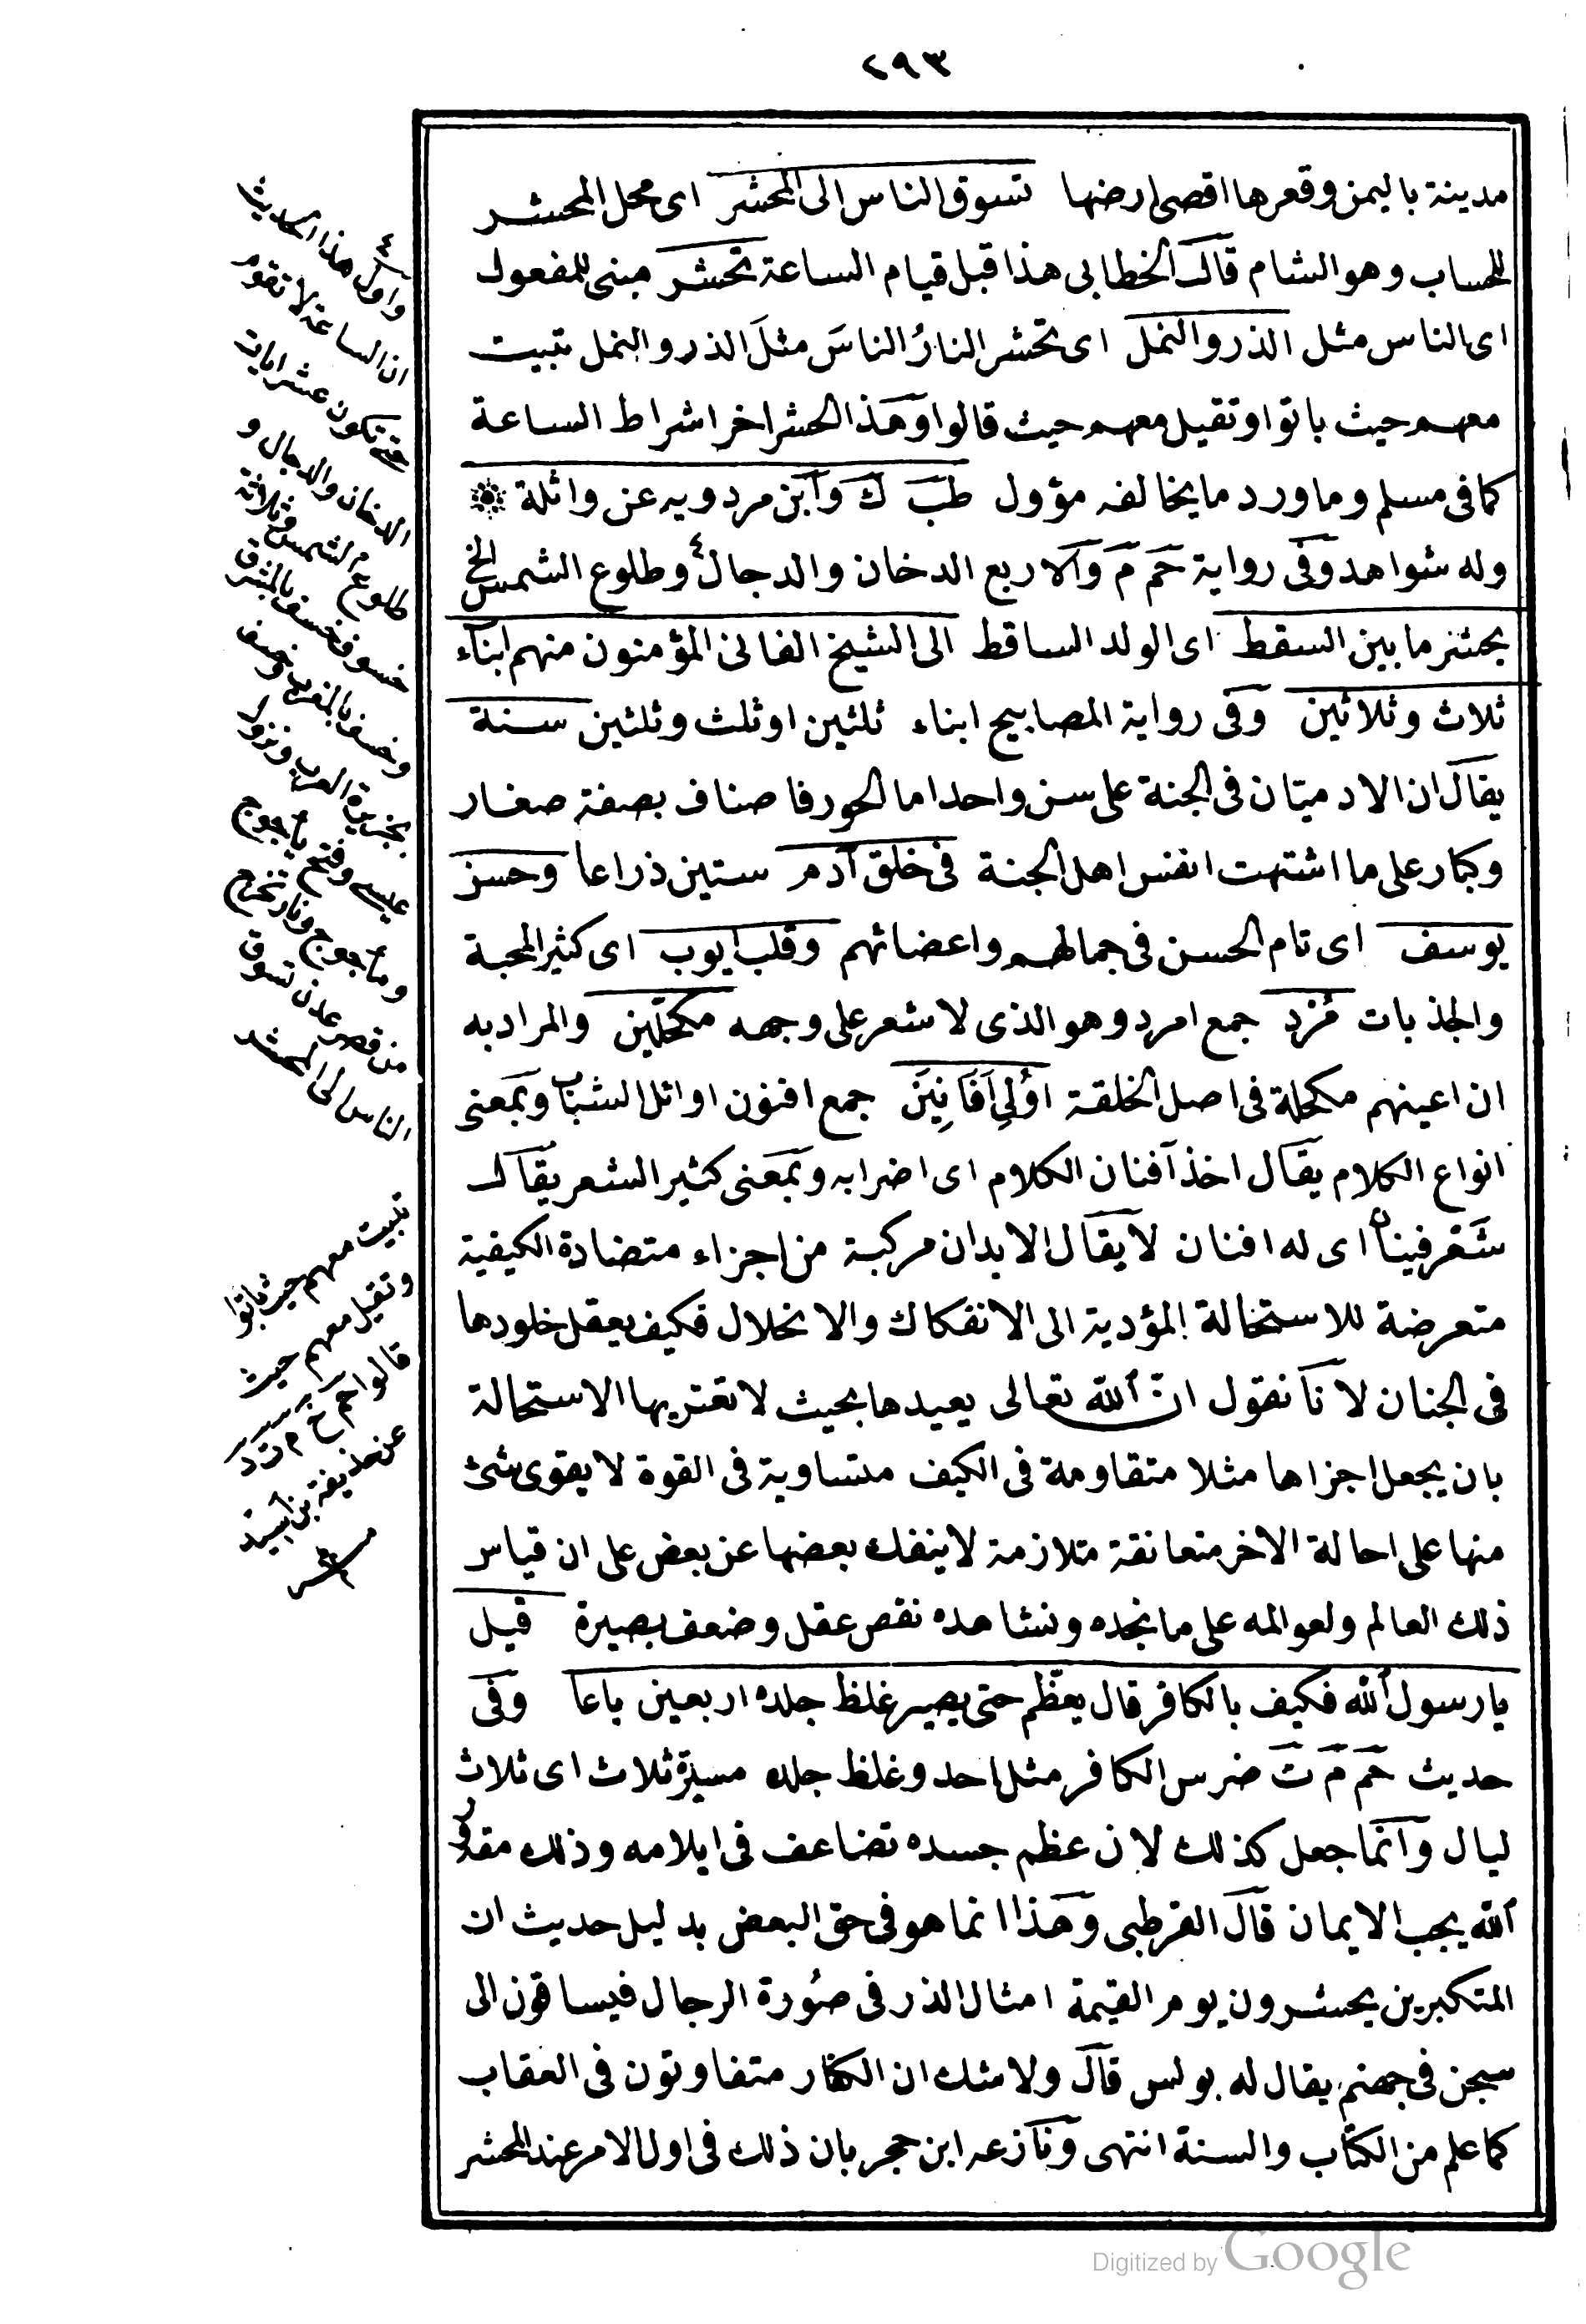 ٢٩٣
مدينة باليمن وقعرها اقصى ارضها تسوق الناس الى المحشر اى محل المحشر
للحساب وهو الشام قال الخطابى هذا قبل قيام الساعة تحشر مبنى للمفعول
اى الناس مثل الذر والنمل اى تحشر النارُ الناسَ مثلَ الذر والنمل تبيت
معهم حيث باتوا وتقيل معهم حيث قالوا وهذا الحشر اخر اشراط الساعة
كما فى مسلم وما ورد ما يخالفه مؤول طب ك وابن مردويه عن واثلة
وله شواهد وفى رواية حم م والاربع الدخان والدجال ٤ وطلوع الشمس الخ
يحشر ما بين السقط اى الولد الساقط الى الشيخ الفانى المؤمنون منهم ابناء
ثلاث وثلاثين وفى رواية المصابيح ابناء ثلثين او ثلث وثلثين سنة
يقال ان الادميّان فى الجنة على سن واحد اما الحور فاصناف بصفة صغار
وكبار على ما اشتهت انفس اهل الجنة فى خلق آدم ستين ذراعا وحسن
يوسف اى تام الحسن فى جمالهم واعضائهم وقلب ايوب اى كثير المحبة
والجذبات مُرْد جمع امرد وهو الذى لا شعر على وجهه مكحّلين والمراد به
ان اعينهم مكحلة فى اصل الخلقة اُولى اَفَانِيَن جمع افنون اوائل الشباب وبمعنى
انواع الكلام يقال اخذ افنان الكلام اى اضرابه وبمعنى كثير الشعر يقال
شَعْر فينان اى له افنان لا يقال الابدان مركبة من اجزاء متضادة الكيفية
متعرضة للاستحالة المؤدية الى الانفكاك والانحلال فكيف يعقل خلودها
فى الجنان لانا نقول انّ الله تعالى يعيدها بحيث لا تعتريها الاستحالة
بان يجعل اجزاها مثلا متقاومة فى الكيف متساوية فى القوة لا يقوى شئ
منها على احالة الاخر متعانقة متلازمة لا ينفك بعضها عن بعض على ان قياس
ذلك العالم ولعوالمه على ما نجده ونشاهده نقص عقل وضعف بصيرة قيل
يا رسول الله فكيف بالكافر قال يعظّم حتى يصير غلظ جلده اربعين باعا وفى
حديث حم م ت ضرس الكافر مثل احد وغلظ جلده مسيرة ثلاث اى ثلاث
ليال وانما جعل كذلك لان عظم جسده تضاعف فى ايلامه وذلك مقدور
الله يجب الايمان قال القرطبى وهذا انما هو فى حق البعض بدليل حديث ان
المتكبرين يحشرون يوم القيمة امثال الذر فى صُورة الرجال فيساقون الى
سجن فى جهنم يقال له بولس قال ولا شك ان الكفار متفاوتون فى العقاب
كما علم من الكتاب والسنة انتهى ونازعه ابن حجر بان ذلك فى اول الامر عند المحشر
٤
واول هذا الحديث
ان الساعة لا تقوم
حتى تكون عشر ايات
الدخان والدجال و
طلوع الشمس وثلاثة
خسوف خسف بالمشرق
وخسف بالمغرب وخسف
بجزيرة العرب ونزول
عيسى وفتح يأجوج
ومأجوج ونار تخرج
من قعر عدن تسوق
الناس الى المحشر
تبيت معهم حيث باتوا
وتقيل معهم حيث
قالوا حم
عن حذيفة بن اسيد
Digitized by Google